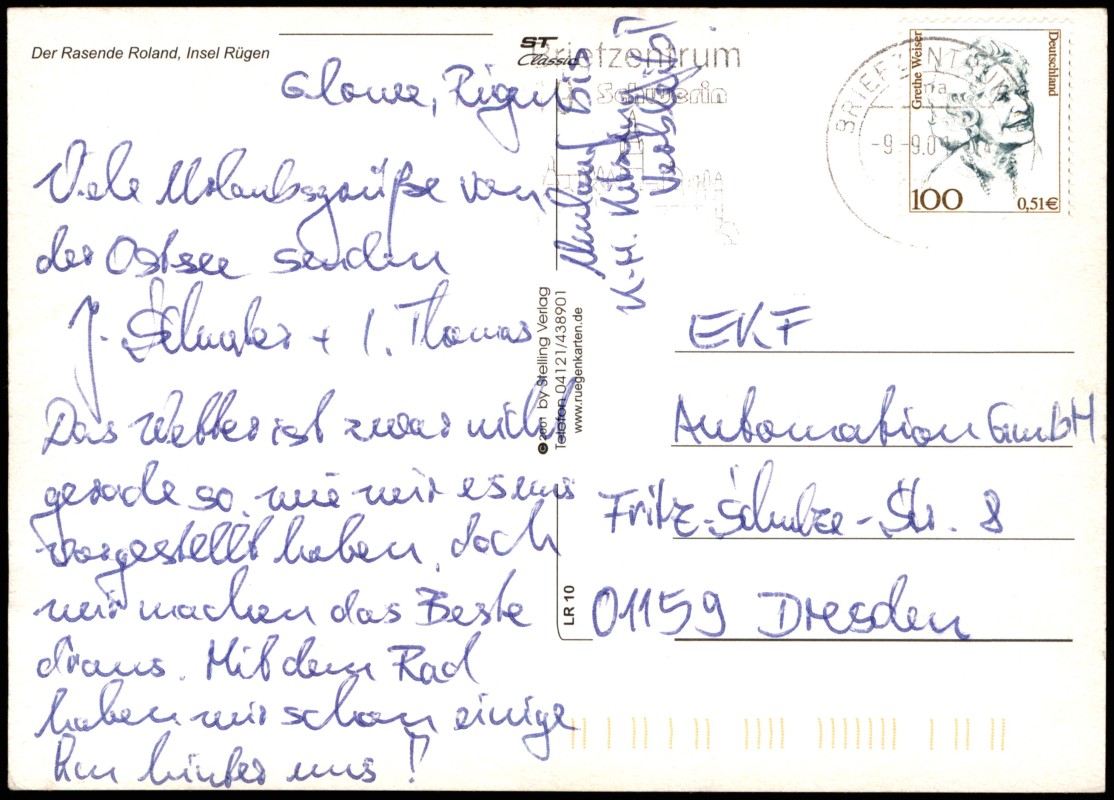 Der Rasende Roland, Insel Rügen
ST
Classic
Glowe, Rügen
Viele Urlaubsgrüße von
der Ostsee senden
J. + I. Thomas
Das Wetter ist zwar nicht
gerade so, wie wir es uns
vorgestellt haben, doch
wir machen das Beste
draus. Mit dem Rad
haben wir schon einige
km hinter uns!
K-H.
© 2001 by Stelling Verlag
Telefon 04121/438901
www.ruegenkarten.de
LR 10
Briefzentrum
Schwerin
BRIEFZENTRUM
-9.-9.0
Grethe Weiser
Deutschland
100
0,51€
EKF
Automation GmbH
Fritz-Schulze-Str. 8
01159 Dresden